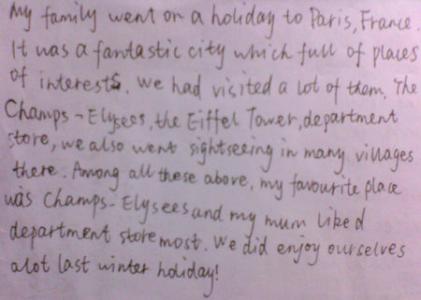 My family went on a holiday to Paris, France.
It was a fantastic city which full of places
of interests. We had visited a lot of them. The
Champs-Elysees, the Eiffel Tower, department
store, we also went sightseeing in many villages
there. Among all these above, my favourite place
was Champs-Elysees and my mum liked
department store most. We did enjoy ourselves
alot last winter holiday!